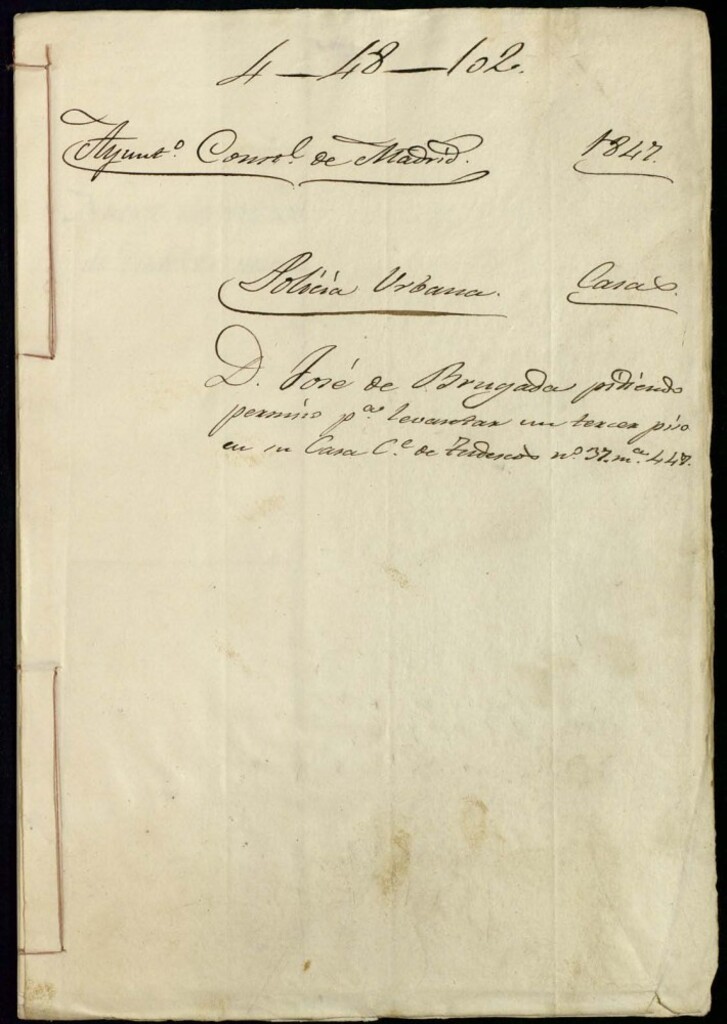 4-48-102.
Ayunt.º Const.l de Madrid. 1847.
Policia Urbana. Casas.
D. José de Brugada pidiendo
permiso p.a levantar un tercer piso
en su Casa C.e de Tudescos nº 37. m.a 447.